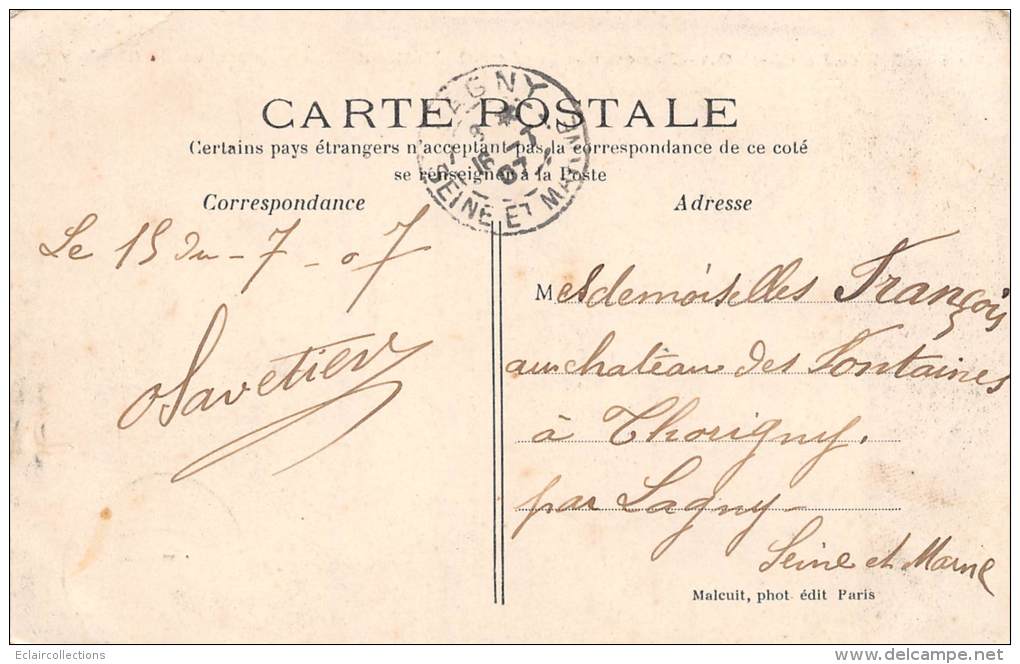 CARTE POSTALE
Certains pays étrangers n'acceptant pas la correspondance de ce coté
se renseigner à la Poste
Correspondance
Adresse
LAGNY
16 - 7
07
SEINE ET MARNE
Le 15 du - 7 - 07
Savetier
Mesdemoiselles François
au chateau des Fontaines
à Thorigny.
par Lagny
Seine et Marne
Malcuit, phot édit Paris
Eclaircollections
delcampe.net